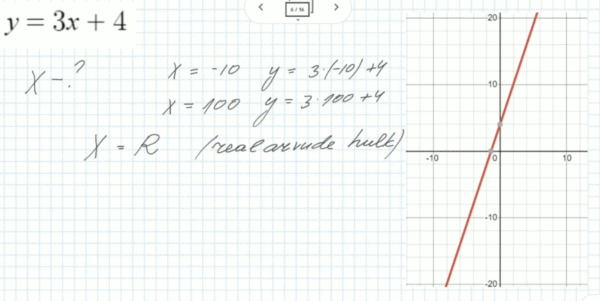 6 / 16
y = 3x + 4
X - ?
X = -10 y = 3·(-10)+4
X = 100 y = 3·100+4
X = R (reaalarvude hulk)
20
10
-10 0 10
-10
-20